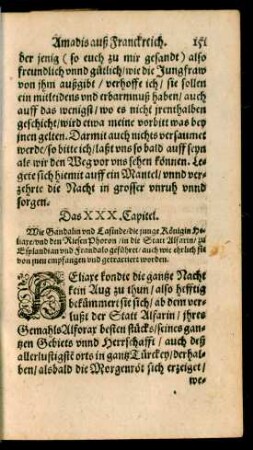 Amadis auß Franckreich. 151
der jenig (so euch zu mir gesandt) also
freundlich vnnd gütlich / wie die Jungfraw
von jhm außgibt / verhoffe ich / sie sollen
ein mitleidens vnd erbarmnuß haben / auch
auff das wenigst / wo es nicht jrenthalben
geschicht / wird etwa meine vorbitt was bey
jnen gelten. Darmit auch nichts versaumet
werde / so bitte ich / laßt vns so bald auff seyn
als wir den Weg vor vns sehen können. Le-
gete sich hiemit auff ein Mantel / vnnd ver-
zehrte die Nacht in grosser vnruh vnnd
sorgen.
Das XXX. Capitel.
Wie Gandalin vnd Lasinde / die junge Königin He-
liaxe / vnd den Riesen Phoron / in die Statt Alfarin / zu
Esplandian vnd Frandalo geführet / auch wie ehrlich sie
von jnen empfangen vnd getractiert worden.
HEliaxe kondte die gantze Nacht
kein Aug zu thun / also hefftig
bekümmert sie sich / ab dem ver-
lußt der Statt Alfarin / jhres
Gemahls Alforax besten stücks / seines gan-
tzen Gebiets vnnd Herrschafft / auch deß
allerlustigsts orts in gantz Türckey / derhal-
ben / alsbald die Morgenröt sich erzeiget /
we-